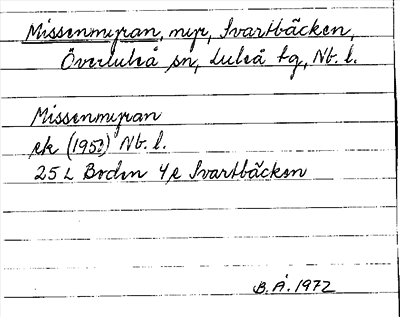 Missenmyran, myr, Svartbäcken,
Överluleå sn, Luleå tg, Nb. l.
Missenmyran
ek (1952) Nb. l.
25 L Boden 4 e Svartbäcken
B. Å. 1972